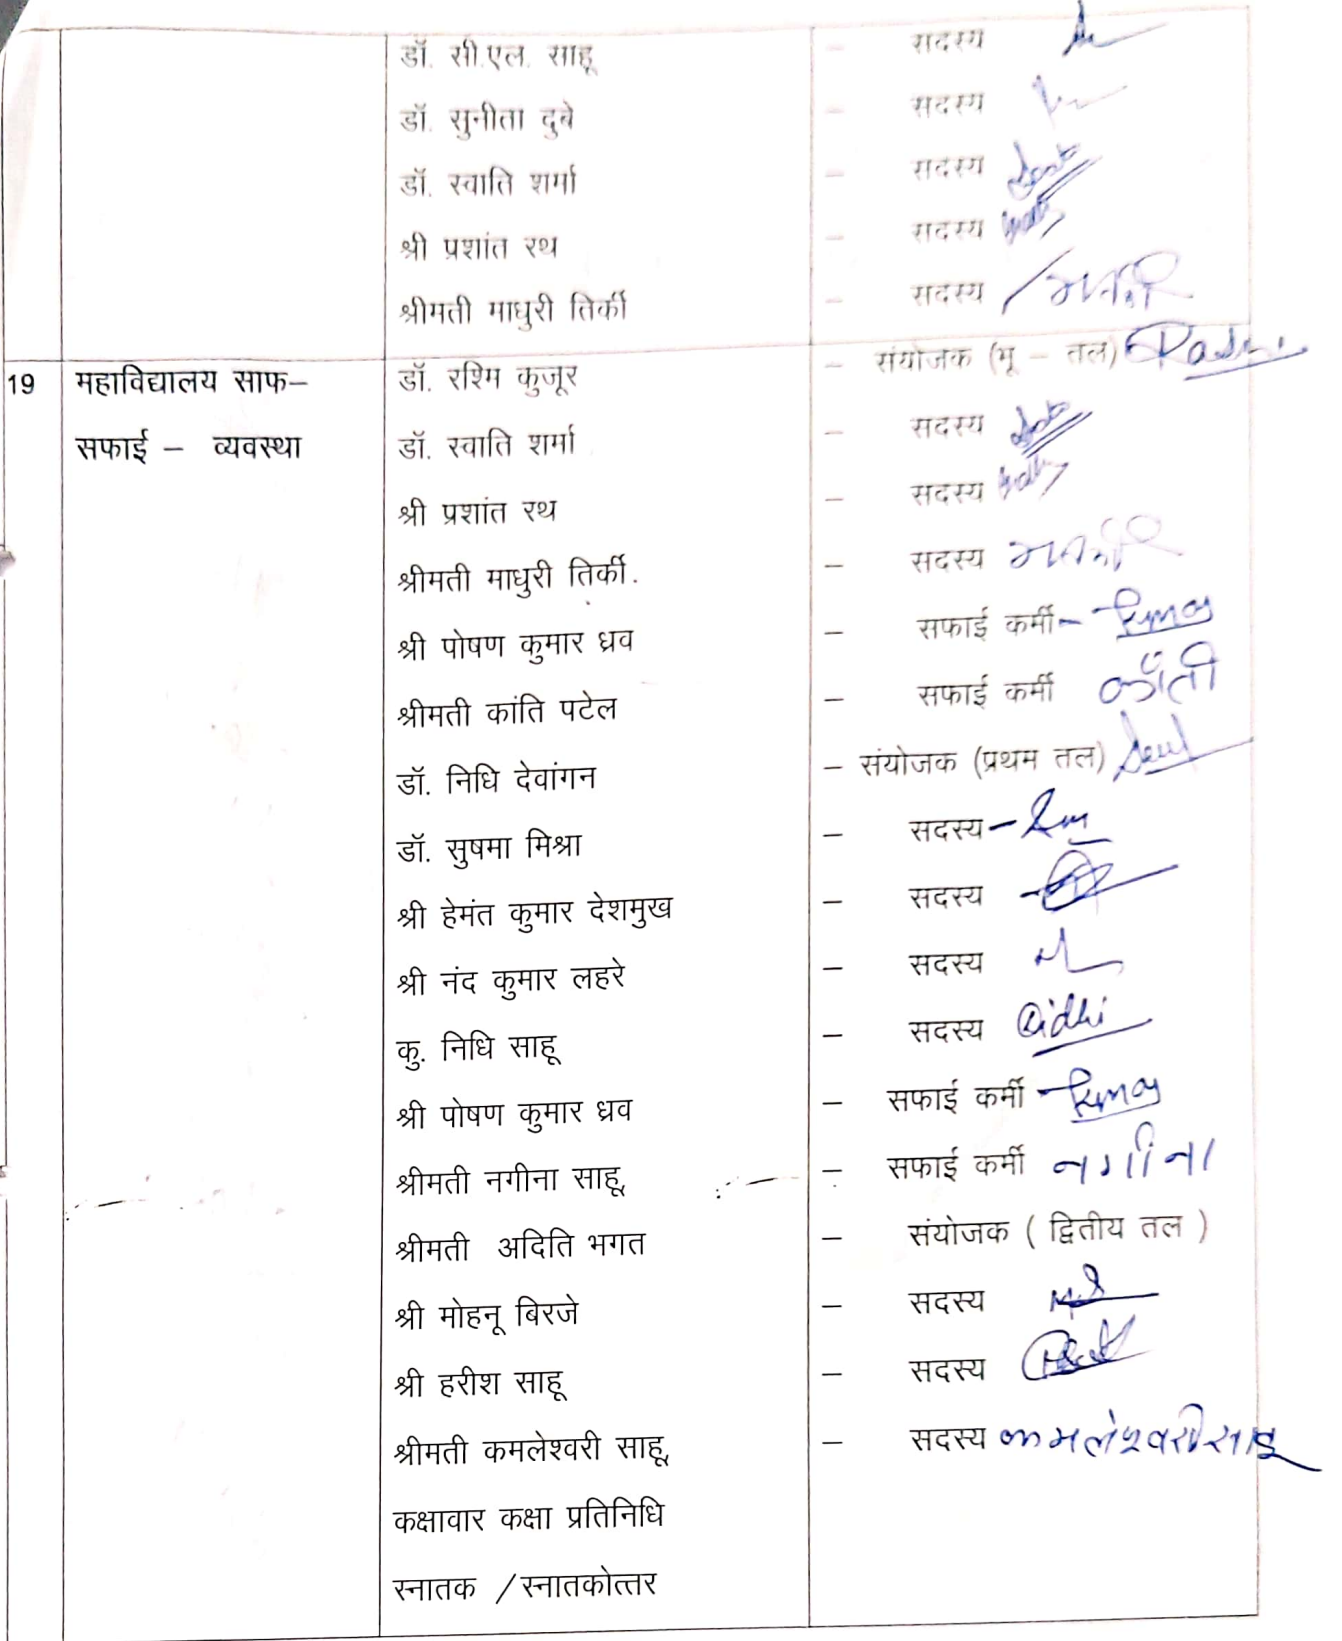 डॉ. सी.एल. साहू – सदस्य
डॉ. सुनीता दुबे – सदस्य
डॉ. स्वाति शर्मा – सदस्य
श्री प्रशांत रथ – सदस्य
श्रीमती माधुरी तिर्की – सदस्य
19 महाविद्यालय साफ– डॉ. रश्मि कुजूर – संयोजक (भू – तल)
सफाई – व्यवस्था डॉ. स्वाति शर्मा – सदस्य
श्री प्रशांत रथ – सदस्य
श्रीमती माधुरी तिर्की. – सदस्य
श्री पोषण कुमार ध्रव – सफाई कर्मी
श्रीमती कांति पटेल – सफाई कर्मी कॉंती
डॉ. निधि देवांगन – संयोजक (प्रथम तल)
डॉ. सुषमा मिश्रा – सदस्य
श्री हेमंत कुमार देशमुख – सदस्य
श्री नंद कुमार लहरे – सदस्य
कु. निधि साहू – सदस्य
श्री पोषण कुमार ध्रव – सफाई कर्मी
श्रीमती नगीना साहू, – सफाई कर्मी नगीना
श्रीमती अदिति भगत – संयोजक ( द्वितीय तल )
श्री मोहनू बिरजे – सदस्य
श्री हरीश साहू – सदस्य
श्रीमती कमलेश्वरी साहू, – सदस्य कमलेश्वरी साहू
कक्षावार कक्षा प्रतिनिधि
स्नातक /स्नातकोत्तर